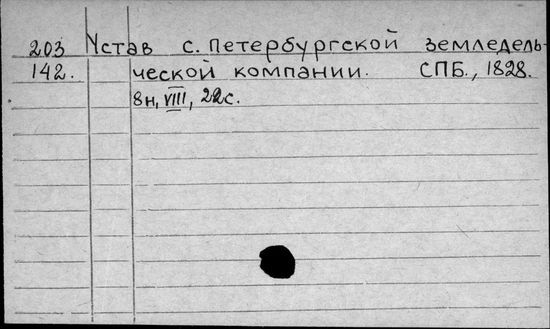 203 Устав с. Петербургской земледель-
142. ческой компании. СПБ., 1828.
8н, VIII, 22с.